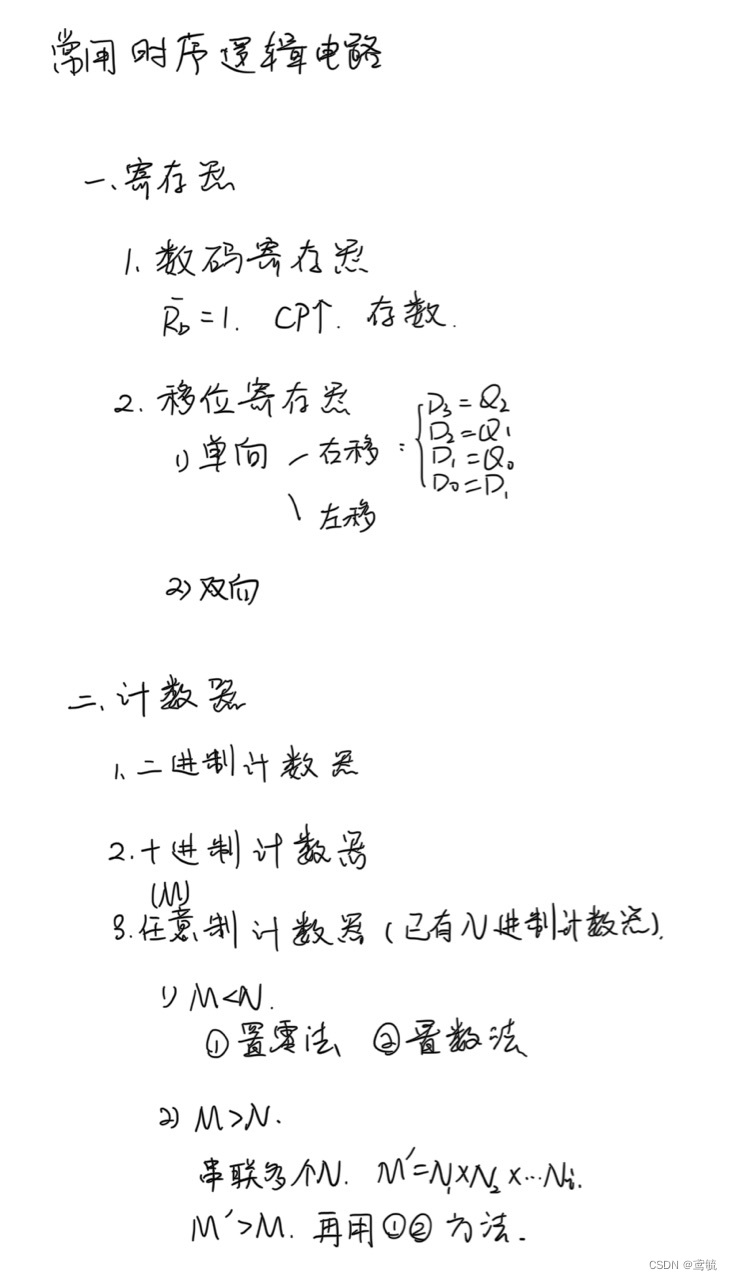 常用时序逻辑电路
一、寄存器
1. 数码寄存器
R̄D=1. CP↑. 存数.
2. 移位寄存器
1) 单向 右移: { D3=Q2
D2=Q1
D1=Q0
D0=D1
左移
2) 双向
二、计数器
1、二进制计数器
2. 十进制计数器
(M)
3. 任意制计数器(已有N进制计数器).
1) M<N.
① 置零法 ② 置数法
2) M>N.
串联多个N. M′=N1×N2×…Ni.
M′>M. 再用①②方法.
CSDN @鸢毓